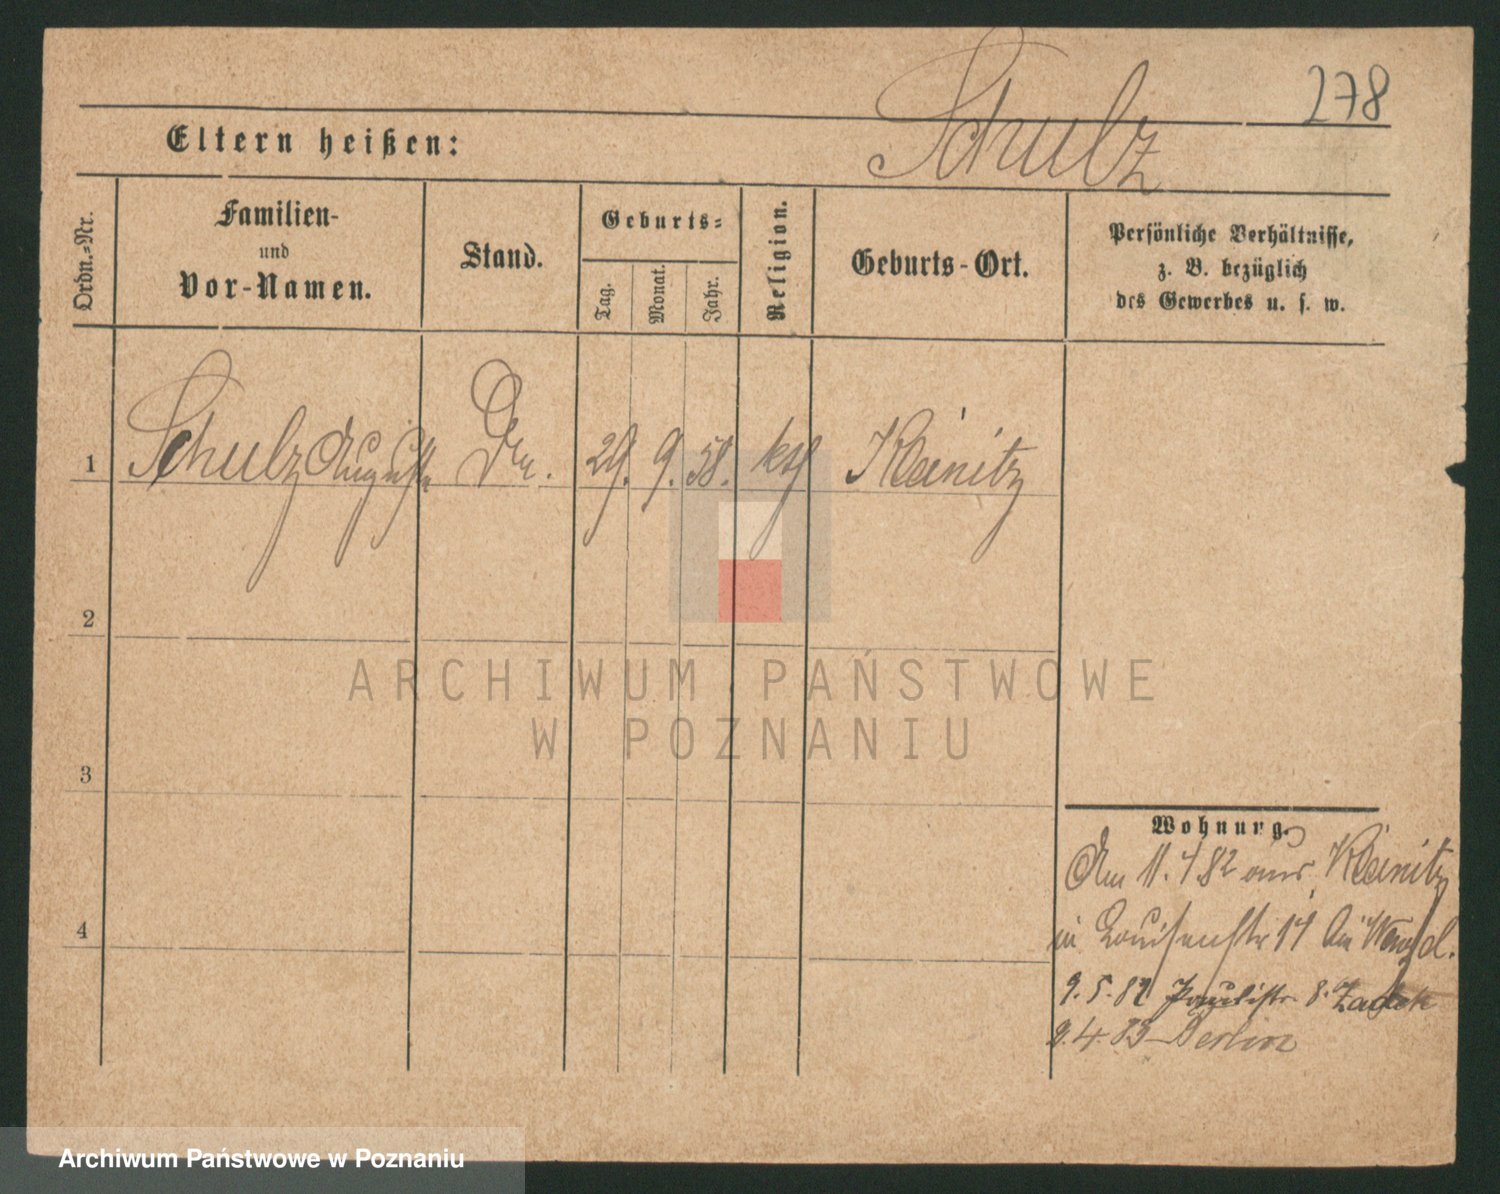 278
Schulz
Eltern heißen:
Ordn.-Nr.
Familien-
und
Vor-Namen.
Stand.
Geburts-
Tag.
Monat.
Jahr.
Religion.
Geburts-Ort.
Persönliche Verhältnisse,
z. B. bezüglich
des Gewerbes u. s. w.
1 Schulz Auguste 29. 9. 58. kth
2
3
4
Wohnung.
Am 11. 4 82 aus
in Louisenstr 17
9. 5. 82 Paulistr. 8. Zadek
9. 4. 83 Berlin
ARCHIWUM PAŃSTWOWE
W POZNANIU
Archiwum Państwowe w Poznaniu